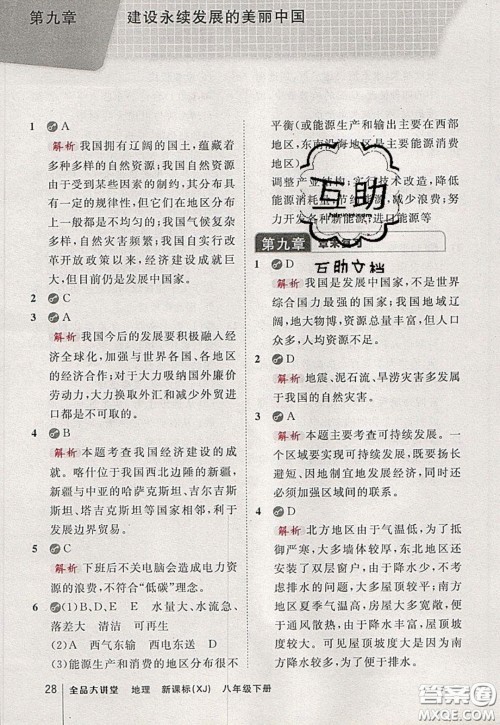 第九章 建设永续发展的美丽中国
1 A
解析 我国拥有辽阔的国土,蕴藏着
多种多样的自然资源;我国自然资
源受到某些因素的制约,其分布具
有一定的规律性,但它们在地区分布
上一般都是不均匀的;我国气候复杂
多样,自然灾害频繁;我国自实行改
革开放政策以来,经济建设成就巨
大,但目前仍是发展中国家。
2 C
3 A
解析 我国今后的发展要积极融入经
济全球化,加强与世界各国、各地区
的经济合作;对于大力吸纳国外廉价
劳动力,大力换取外汇和减少对外贸
易出口都是不对的。
4 B
解析 本题考查我国经济建设的成
就。喀什位于我国西北边陲的新疆,
新疆与中亚的哈萨克斯坦、吉尔吉斯
斯坦、塔吉克斯坦等国家相邻,有利
于发展边境贸易。
5 C
解析 下班后不关电脑会造成电力资
源的浪费,不符合“低碳”理念。
6 (1)B、D、E E 水量大、水流急、
落差大 清洁 可再生
(2)A 西气东输 西电东送 D
(3)能源的生产与能源的消费分布不
平衡(或能源生产和输出主要在西部
地区,东南沿海地区是主要能源消费
地区)
调整产业结构;实行技术改造,降低
能源消耗量,节约能源,减少浪费;努
力开发各种新能源;进口能源等
互助
互助文档
第九章 章末复习
1 D
解析 我国是发展中国家,不是世界
综合国力最强的国家。我国地域辽
阔,地大物博,资源总量丰富,但人口
众多,人均资源不足。
2 D
解析 地震、泥石流、旱涝灾害多发属
于我国的自然灾害。
3 A
解析 本题主要考查可持续发展。一
个区域要实现可持续发展,既要扬长
避短、因地制宜地发展经济,同时还
必须加强区域间的联系。
4 D
解析 北方地区由于气温低,为了抵
御严寒,大多墙体较厚,东北地区还安
装了双层窗户,由于降水少,不用考虑
排水的问题,大多屋顶较平;南方
地区由于气温高,墙体高,窗户大,便
于通风散热,由于降水多,大多屋顶
坡度大,
28 全品大讲堂 地理 新课标(XJ) 八年级下册